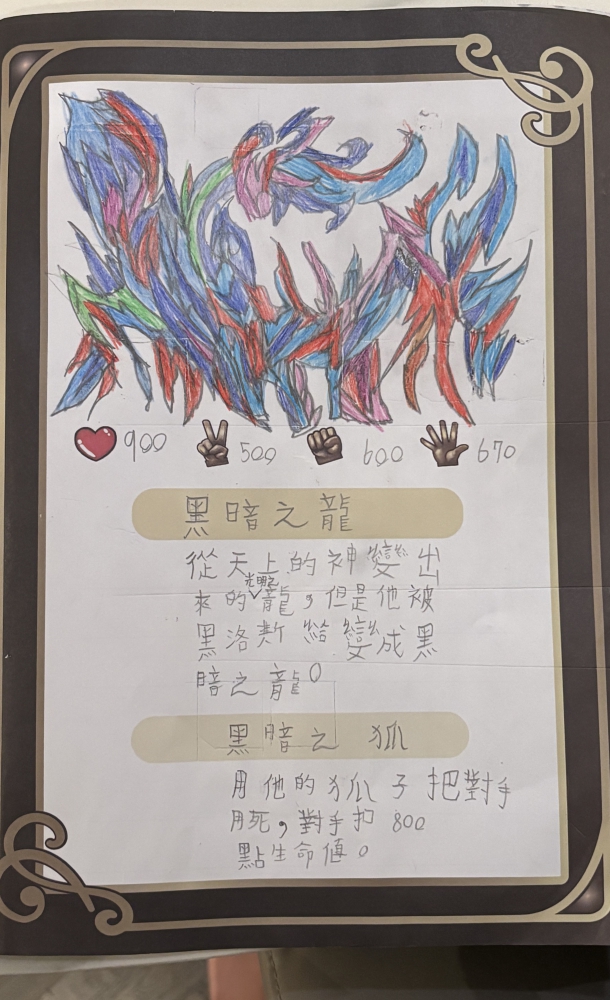 900 500 600 670
黑暗之龍
從天上的神變出
來的光明之龍，但是他被
黑洛斯給變成黑
暗之龍。
黑暗之狐
用他的狐子把對手
死，對手扣800
點生命值。